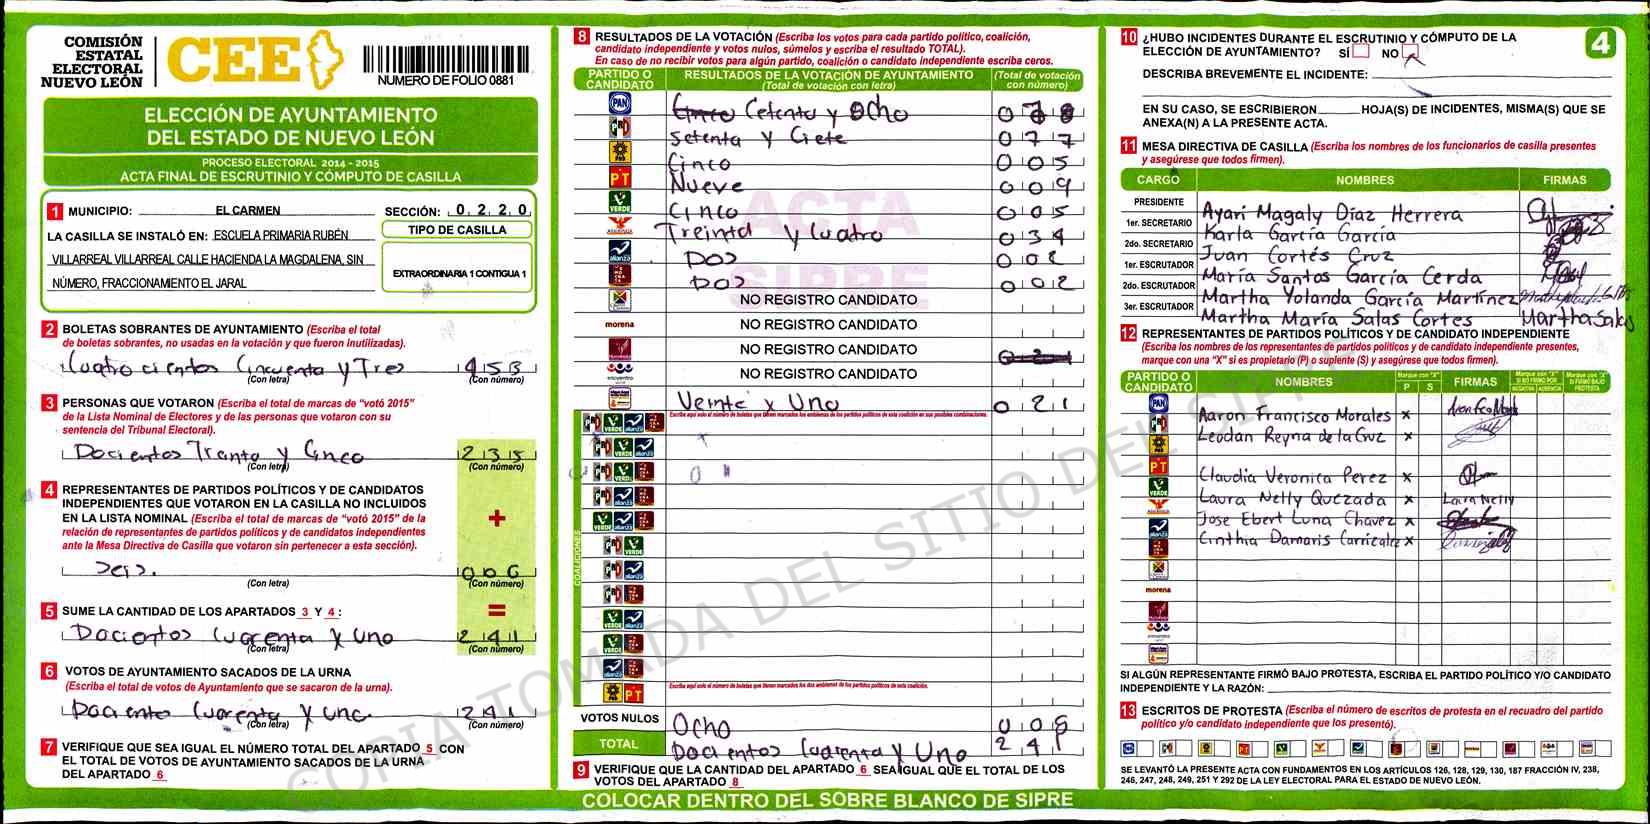 COMISIÓN
ESTATAL
ELECTORAL
NUEVO LEÓN
CEE
NUMERO DE FOLIO 0881
ELECCIÓN DE AYUNTAMIENTO
DEL ESTADO DE NUEVO LEÓN
PROCESO ELECTORAL 2014 - 2015
ACTA FINAL DE ESCRUTINIO Y CÓMPUTO DE CASILLA
1 MUNICIPIO: EL CARMEN SECCIÓN: 0 2 2 0
LA CASILLA SE INSTALÓ EN: ESCUELA PRIMARIA RUBÉN
VILLARREAL VILLARREAL CALLE HACIENDA LA MAGDALENA, SIN
NÚMERO, FRACCIONAMIENTO EL JARAL
TIPO DE CASILLA
EXTRAORDINARIA 1 CONTIGUA 1
2 BOLETAS SOBRANTES DE AYUNTAMIENTO (Escriba el total
de boletas sobrantes, no usadas en la votación y que fueron inutilizadas).
Cuatro cientos Cincuenta y Tres 453
(Con letra) (Con número)
3 PERSONAS QUE VOTARON (Escriba el total de marcas de "votó 2015"
de la Lista Nominal de Electores y de las personas que votaron con su
sentencia del Tribunal Electoral).
Docientos Trenta y Cinco 235
(Con letra) (Con número)
4 REPRESENTANTES DE PARTIDOS POLÍTICOS Y DE CANDIDATOS
INDEPENDIENTES QUE VOTARON EN LA CASILLA NO INCLUIDOS
EN LA LISTA NOMINAL (Escriba el total de marcas de "votó 2015" de la
relación de representantes de partidos políticos y de candidatos independientes
ante la Mesa Directiva de Casilla que votaron sin pertenecer a esta sección).
+
Seis. 006
(Con letra) (Con número)
=
5 SUME LA CANTIDAD DE LOS APARTADOS 3 Y 4 :
Docientos Cuarenta y Uno 241
(Con letra) (Con número)
6 VOTOS DE AYUNTAMIENTO SACADOS DE LA URNA
(Escriba el total de votos de Ayuntamiento que se sacaron de la urna).
Dociento Cuarenta y uno. 241
(Con letra) (Con número)
7 VERIFIQUE QUE SEA IGUAL EL NÚMERO TOTAL DEL APARTADO 5 CON
EL TOTAL DE VOTOS DE AYUNTAMIENTO SACADOS DE LA URNA
DEL APARTADO 6
8 RESULTADOS DE LA VOTACIÓN (Escriba los votos para cada partido político, coalición,
candidato independiente y votos nulos, súmelos y escriba el resultado TOTAL).
En caso de no recibir votos para algún partido, coalición o candidato independiente escriba ceros.
PARTIDO O CANDIDATO RESULTADOS DE LA VOTACIÓN DE AYUNTAMIENTO (Total de votación con letra) (Total de votación con número)
PAN Cinco Cetenta y Ocho 078
PRI Setenta y Ciete 077
PRD Cinco 005
PT Nueve 009
VERDE Cinco 005
Treinta y Cuatro 034
alianza Dos 002
Dos 002
NO REGISTRO CANDIDATO
morena NO REGISTRO CANDIDATO
NO REGISTRO CANDIDATO
encuentro social NO REGISTRO CANDIDATO
Veinte y Uno 021
Escriba aquí solo el número de boletas que tienen marcados los emblemas de los partidos políticos de esta coalición en sus posibles combinaciones.
COALICIONES
Escriba aquí solo el número de boletas que tienen marcados los dos emblemas de los partidos políticos de esta coalición.
VOTOS NULOS Ocho 008
TOTAL Docientos Cuarenta y Uno 241
9 VERIFIQUE QUE LA CANTIDAD DEL APARTADO 6 SEA IGUAL QUE EL TOTAL DE LOS
VOTOS DEL APARTADO 8
ACTA
SIPRE
COPIA TOMADA DEL SITIO DEL SIPRE
COLOCAR DENTRO DEL SOBRE BLANCO DE SIPRE
10 ¿HUBO INCIDENTES DURANTE EL ESCRUTINIO Y CÓMPUTO DE LA
ELECCIÓN DE AYUNTAMIENTO? SÍ NO X
4
DESCRIBA BREVEMENTE EL INCIDENTE:
EN SU CASO, SE ESCRIBIERON HOJA(S) DE INCIDENTES, MISMA(S) QUE SE
ANEXA(N) A LA PRESENTE ACTA.
11 MESA DIRECTIVA DE CASILLA (Escriba los nombres de los funcionarios de casilla presentes
y asegúrese que todos firmen).
CARGO NOMBRES FIRMAS
PRESIDENTE Ayari Magaly Díaz Herrera
1er. SECRETARIO Karla García García
2do. SECRETARIO Juan Cortés Cruz
1er. ESCRUTADOR María Santos García Cerda
2do. ESCRUTADOR Martha Yolanda García Martínez
3er. ESCRUTADOR Martha María Salas Cortes Martha Salas
12 REPRESENTANTES DE PARTIDOS POLÍTICOS Y DE CANDIDATO INDEPENDIENTE
(Escriba los nombres de los representantes de partidos políticos y de candidato independiente presentes,
marque con una "X" si es propietario (P) o suplente (S) y asegúrese que todos firmen).
PARTIDO O CANDIDATO NOMBRES Marque con "X" P S FIRMAS Marque con "X" SI NO FIRMÓ POR NEGATIVA AUSENCIA Marque con "X" SI FIRMÓ BAJO PROTESTA
Aaron Francisco Morales x
Leodan Reyna de la Cruz x
Claudia Veronica Perez x
Laura Nelly Quezada x Laura Nelly
Jose Ebert Luna Chavez x
Cinthia Damaris Carrizales x
morena
SI ALGÚN REPRESENTANTE FIRMÓ BAJO PROTESTA, ESCRIBA EL PARTIDO POLÍTICO Y/O CANDIDATO
INDEPENDIENTE Y LA RAZÓN:
13 ESCRITOS DE PROTESTA (Escriba el número de escritos de protesta en el recuadro del partido
político y/o candidato independiente que los presentó).
SE LEVANTÓ LA PRESENTE ACTA CON FUNDAMENTOS EN LOS ARTÍCULOS 126, 128, 129, 130, 187 FRACCIÓN IV, 238,
246, 247, 248, 249, 251 Y 292 DE LA LEY ELECTORAL PARA EL ESTADO DE NUEVO LEÓN.